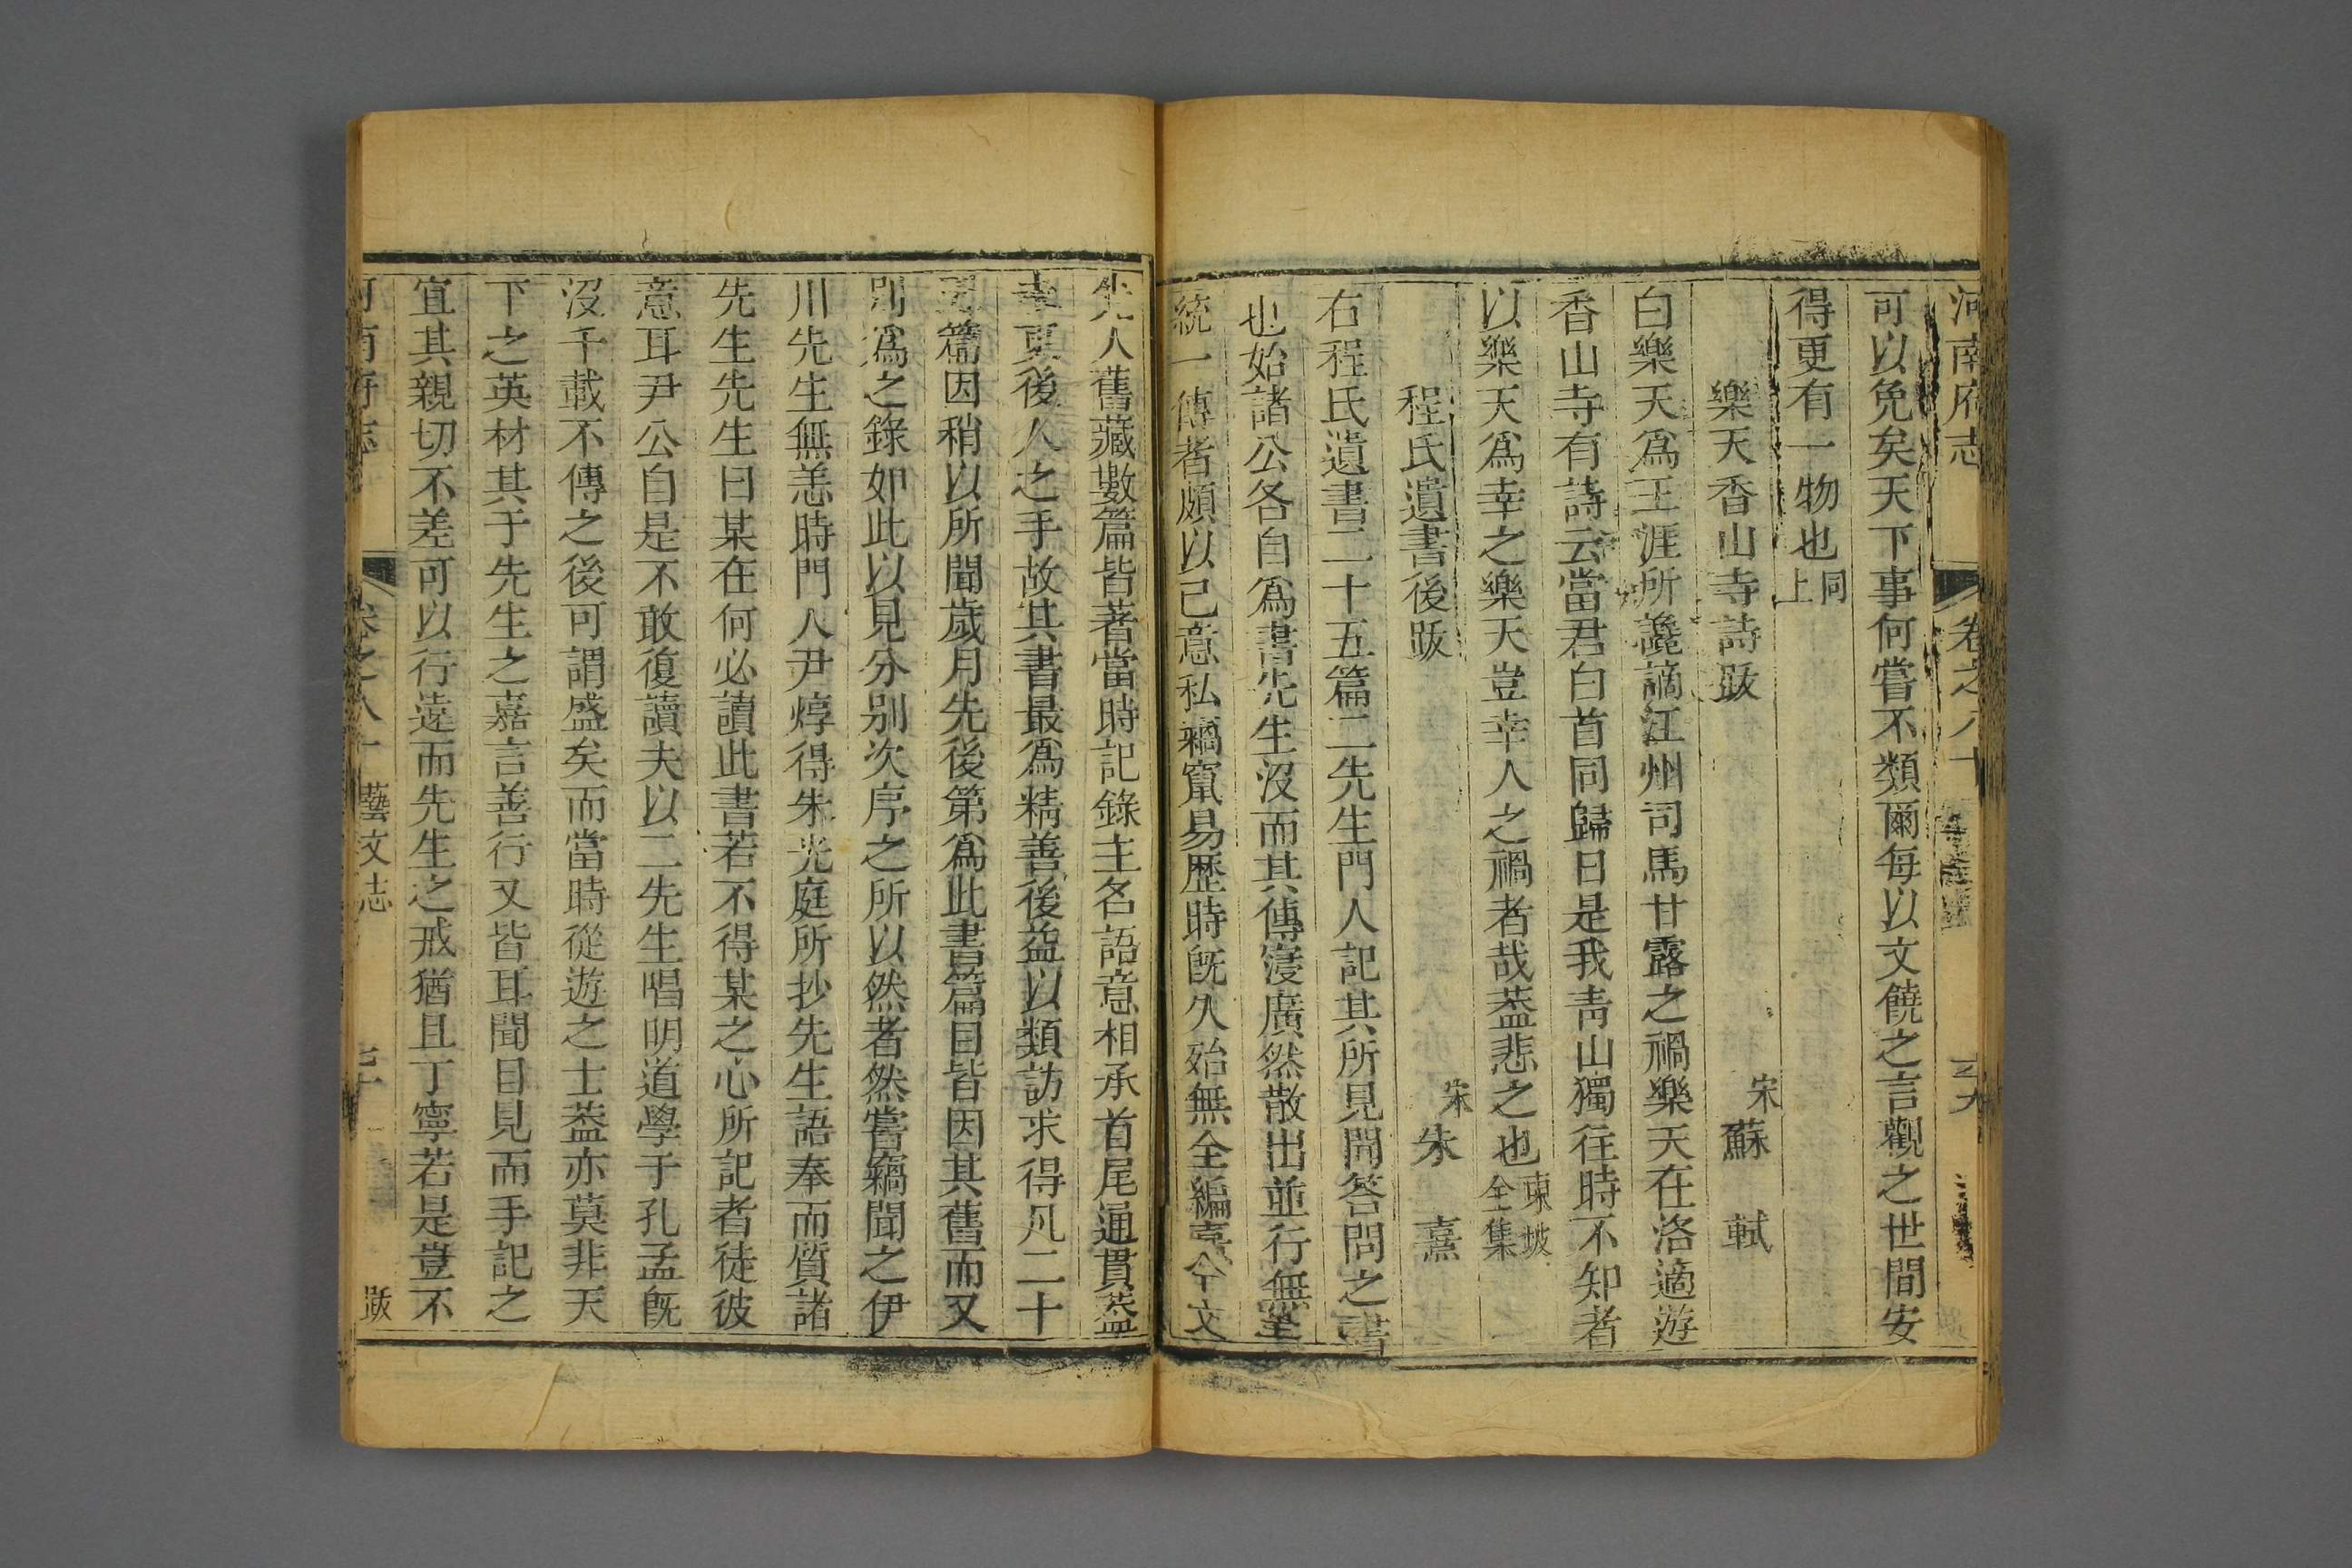 河南府志 卷之八十
可以免矣天下事何嘗不類爾每以文饒之言觀之世間安
得更有一物也同上
樂天香山寺詩跋 宋 蘇軾
白樂天爲王涯所讒謫江州司馬甘露之禍樂天在洛適遊
香山寺有詩云當君白首同歸日是我青山獨往時不知者
以樂天爲幸之樂天豈幸人之禍者哉葢悲之也東坡全集
程氏遺書後跋 宋 朱熹
右程氏遺書二十五篇二先生門人記其所見聞答問之書
也始諸公各自爲書先生沒而其傳寖廣然散出並行無
統一傳者頗以己意私竊竄易歷時旣久殆無全編熹
先人舊藏數篇皆著當時記錄主名語意相承首尾通貫葢
未更後人之手故其書最爲精善後益以類訪求得凡二十
五篇因稍以所聞歲月先後第爲此書篇目皆因其舊而又
別爲之錄如此以見分别次序之所以然者然嘗竊聞之伊
川先生無恙時門人尹焞得朱光庭所抄先生語奉而質諸
先生先生曰某在何必讀此書若不得某之心所記者徒彼
意耳尹公自是不敢復讀夫以二先生唱明道學于孔孟旣
沒千載不傳之後可謂盛矣而當時從遊之士葢亦莫非天
下之英材其于先生之嘉言善行又皆耳聞目見而手記之
宜其親切不差可以行遠而先生之戒猶且丁寧若是豈不
河南府志 卷之八十 藝文志 跋